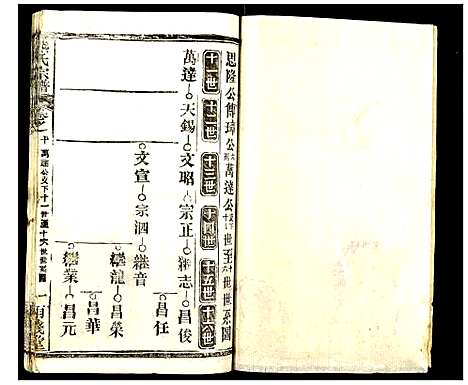 思隆公傳璋公萬達公世至世世系圖
十一世 十二世 十三世 十四世 十五世 十六世
萬達 天錫 文昭 宗正 繼志 昌俊
文宣 宗泗 繼音 昌任
繼龍 昌榮
昌華
繼業 昌元
氏宗譜
卷十 萬達公支下十一世至十六世世系圖
一 有慶堂